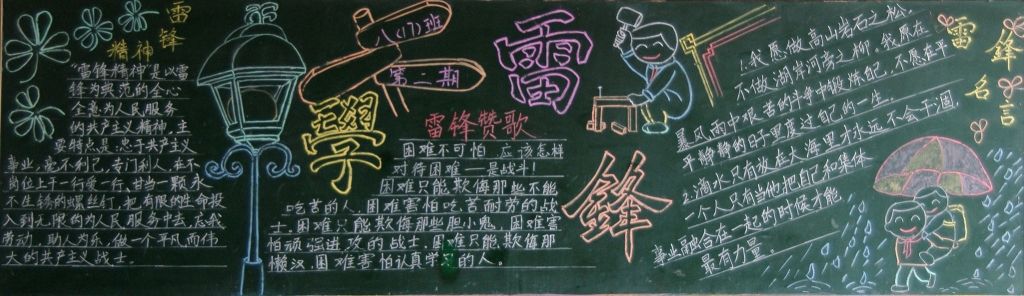 雷锋
精神
"雷锋精神"是以雷
锋为典范的全心
全意为人民服务
的共产主义精神,主
要特点是:忠于共产主义
事业,毫不利己,专门利人,干
岗位上干一行爱一行,甘当一颗永
不生锈的螺丝钉,把有限的生命投
入到无限的为人民服务中去,忘我
劳动,助人为乐,做一个平凡而伟
大的共产主义战士。
八(17)班
第二期
學
雷
鋒
雷锋赞歌
困难不可怕 应该怎样
对待困难——是战斗!
困难只能欺侮那些不能
吃苦的人,困难害怕吃苦耐劳的战
士。困难只能欺侮那些胆小鬼,困难害
怕顽强进攻的战士。困难只能欺侮那
懒汉,困难害怕认真学习的人。
雷锋
名言
1.我愿做高山岩石之松,
不做湖岸河旁之柳。我愿在
暴风雨中艰苦的斗争中锻炼自己,不愿在平
平静静的日子里度过自己的一生。
2.滴水只有放在大海里才永远不会干涸,
一个人只有当他把自己和集体
事业融合在一起的时候才能
最有力量。